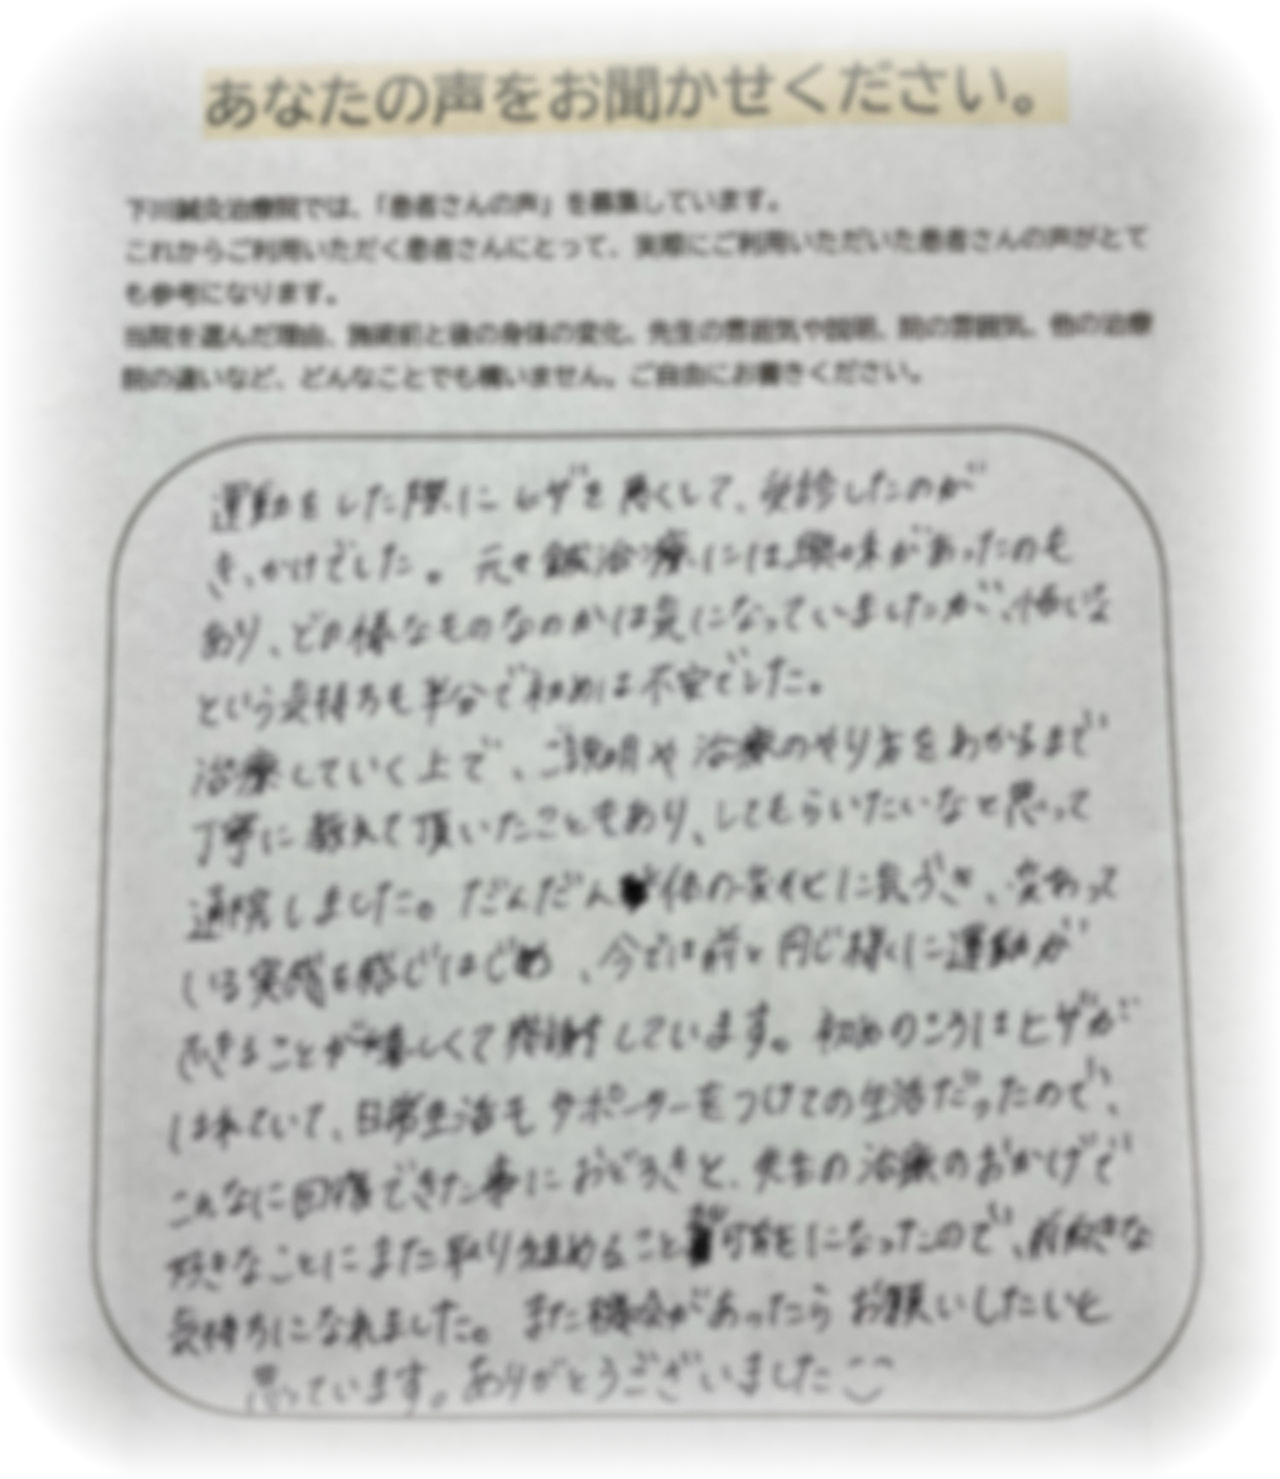 あなたの声をお聞かせください。
下川鍼灸治療院では、「患者さんの声」を募集しています。
これからご利用いただく患者さんにとって、実際にご利用いただいた患者さんの声がとて
も参考になります。
当院を選んだ理由、施術前と後の身体の変化、先生の雰囲気や説明、院の雰囲気、他の治療
院の違いなど、どんなことでも構いません。ご自由にお書きください。
運動をした際にヒザを悪くして、受診したのが
きっかけでした。元々鍼治療には興味があったのも
あり、どの様なものなのかは気になっていましたが、怖いな
という気持ちも半分で初めは不安でした。
治療していく上で、ご説明や治療のやり方をわかるまで
丁寧に教えて頂いたこともあり、してもらいたいなと思って
通院しました。だんだん体の変化に気づき、変わって
いる実感を感じはじめ、今では前と同じ様に運動が
できることが嬉しくて感謝しています。初めのころはヒザが
はれていて、日常生活もサポーターをつけての生活だったので、
こんなに回復できた事におどろきと、先生の治療のおかげで
好きなことにまた取り組めること可能になったので、前向きな
気持ちになれました。また機会があったらお願いしたいと
思っています。ありがとうございました